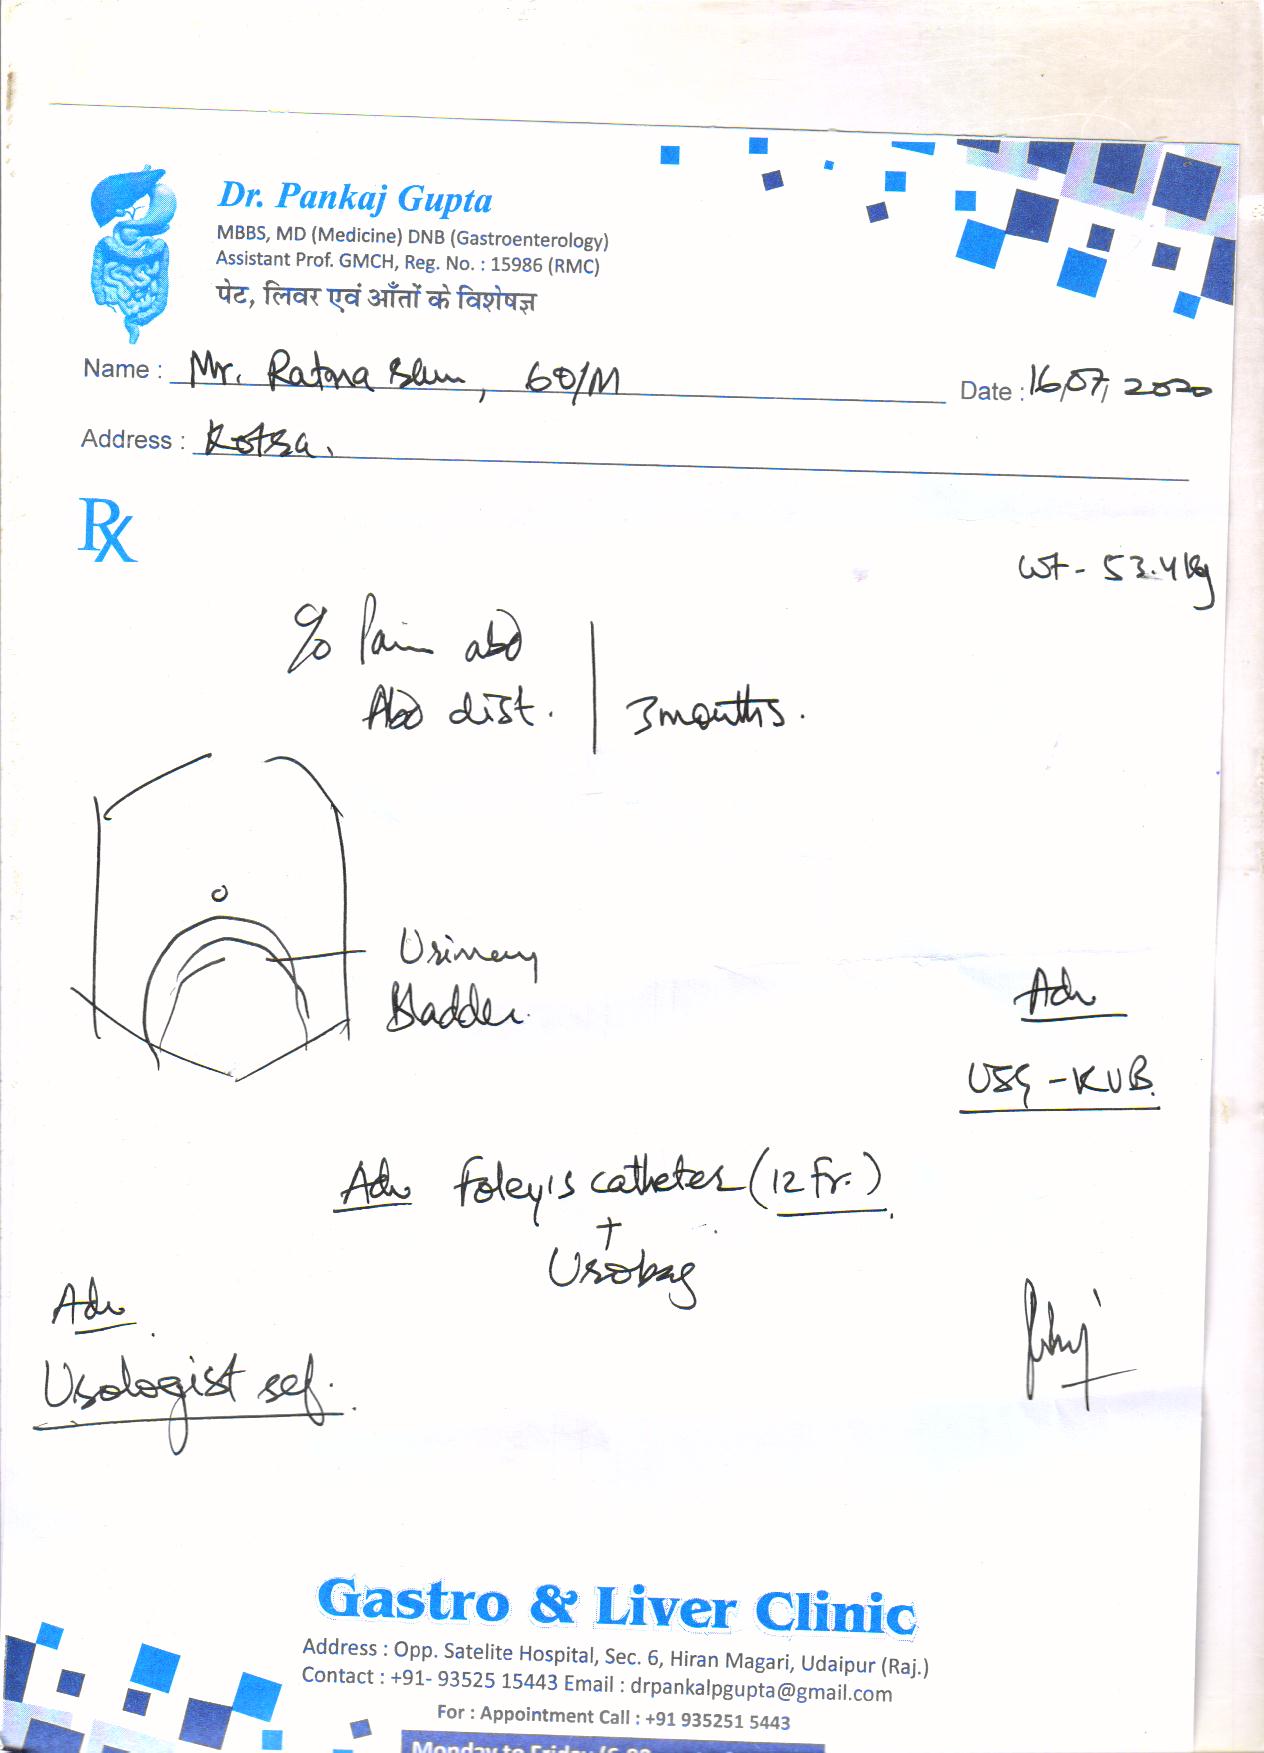 Dr. Pankaj Gupta
MBBS, MD (Medicine) DNB (Gastroenterology)
Assistant Prof. GMCH, Reg. No. : 15986 (RMC)
पेट, लिवर एवं आँतों के विशेषज्ञ
Name : Mr. Ratna 60/M
Date : 16/07/2020
Address : Kotra.
Rx
Wt - 53.4 kg
c/o Pain abd
Abd dist. 3 months.
Urinary
Bladder.
Adv
USG - KUB.
Adv Foley's catheter (12 Fr.)
+
Urobag
Adv
Urologist ref.
Gastro & Liver Clinic
Address : Opp. Satelite Hospital, Sec. 6, Hiran Magari, Udaipur (Raj.)
Contact : +91- 93525 15443 Email : drpankalpgupta@gmail.com
For : Appointment Call : +91 935251 5443
Monday to Friday